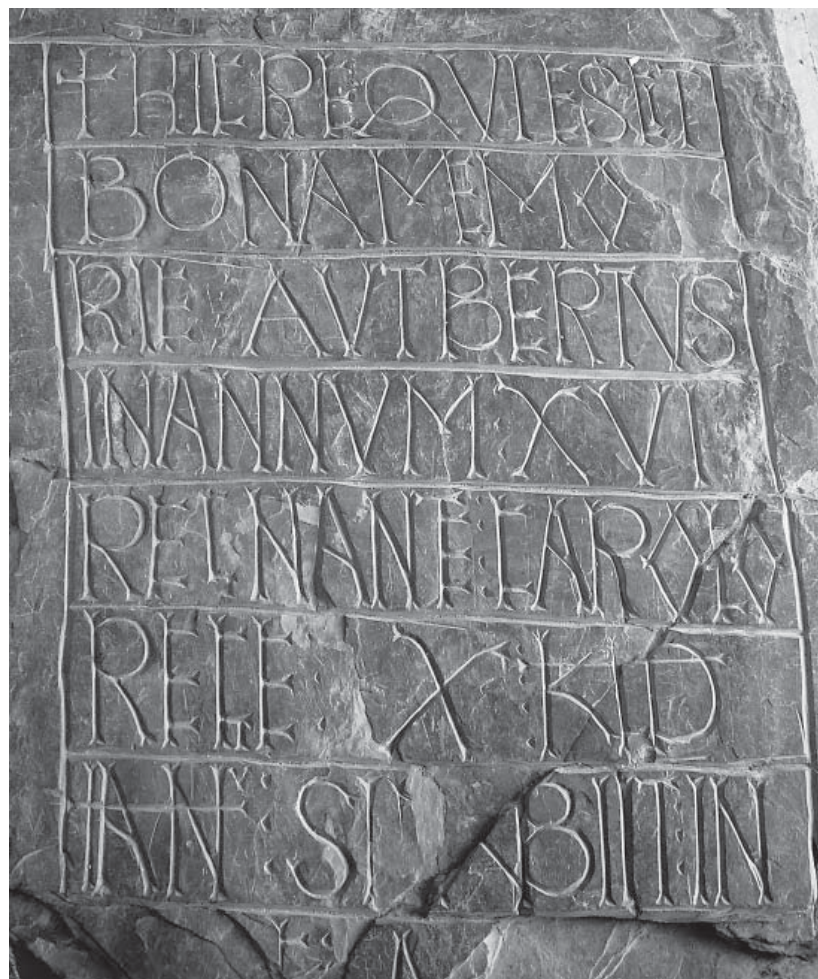 † HIC REQVIESCIT
BONAMEMO
RIE AVTBERTVS
IN ANNVM XVI
REGNANTE : CAROLO
REGE : X : KLD
IAN : SIC ABIIT : IN